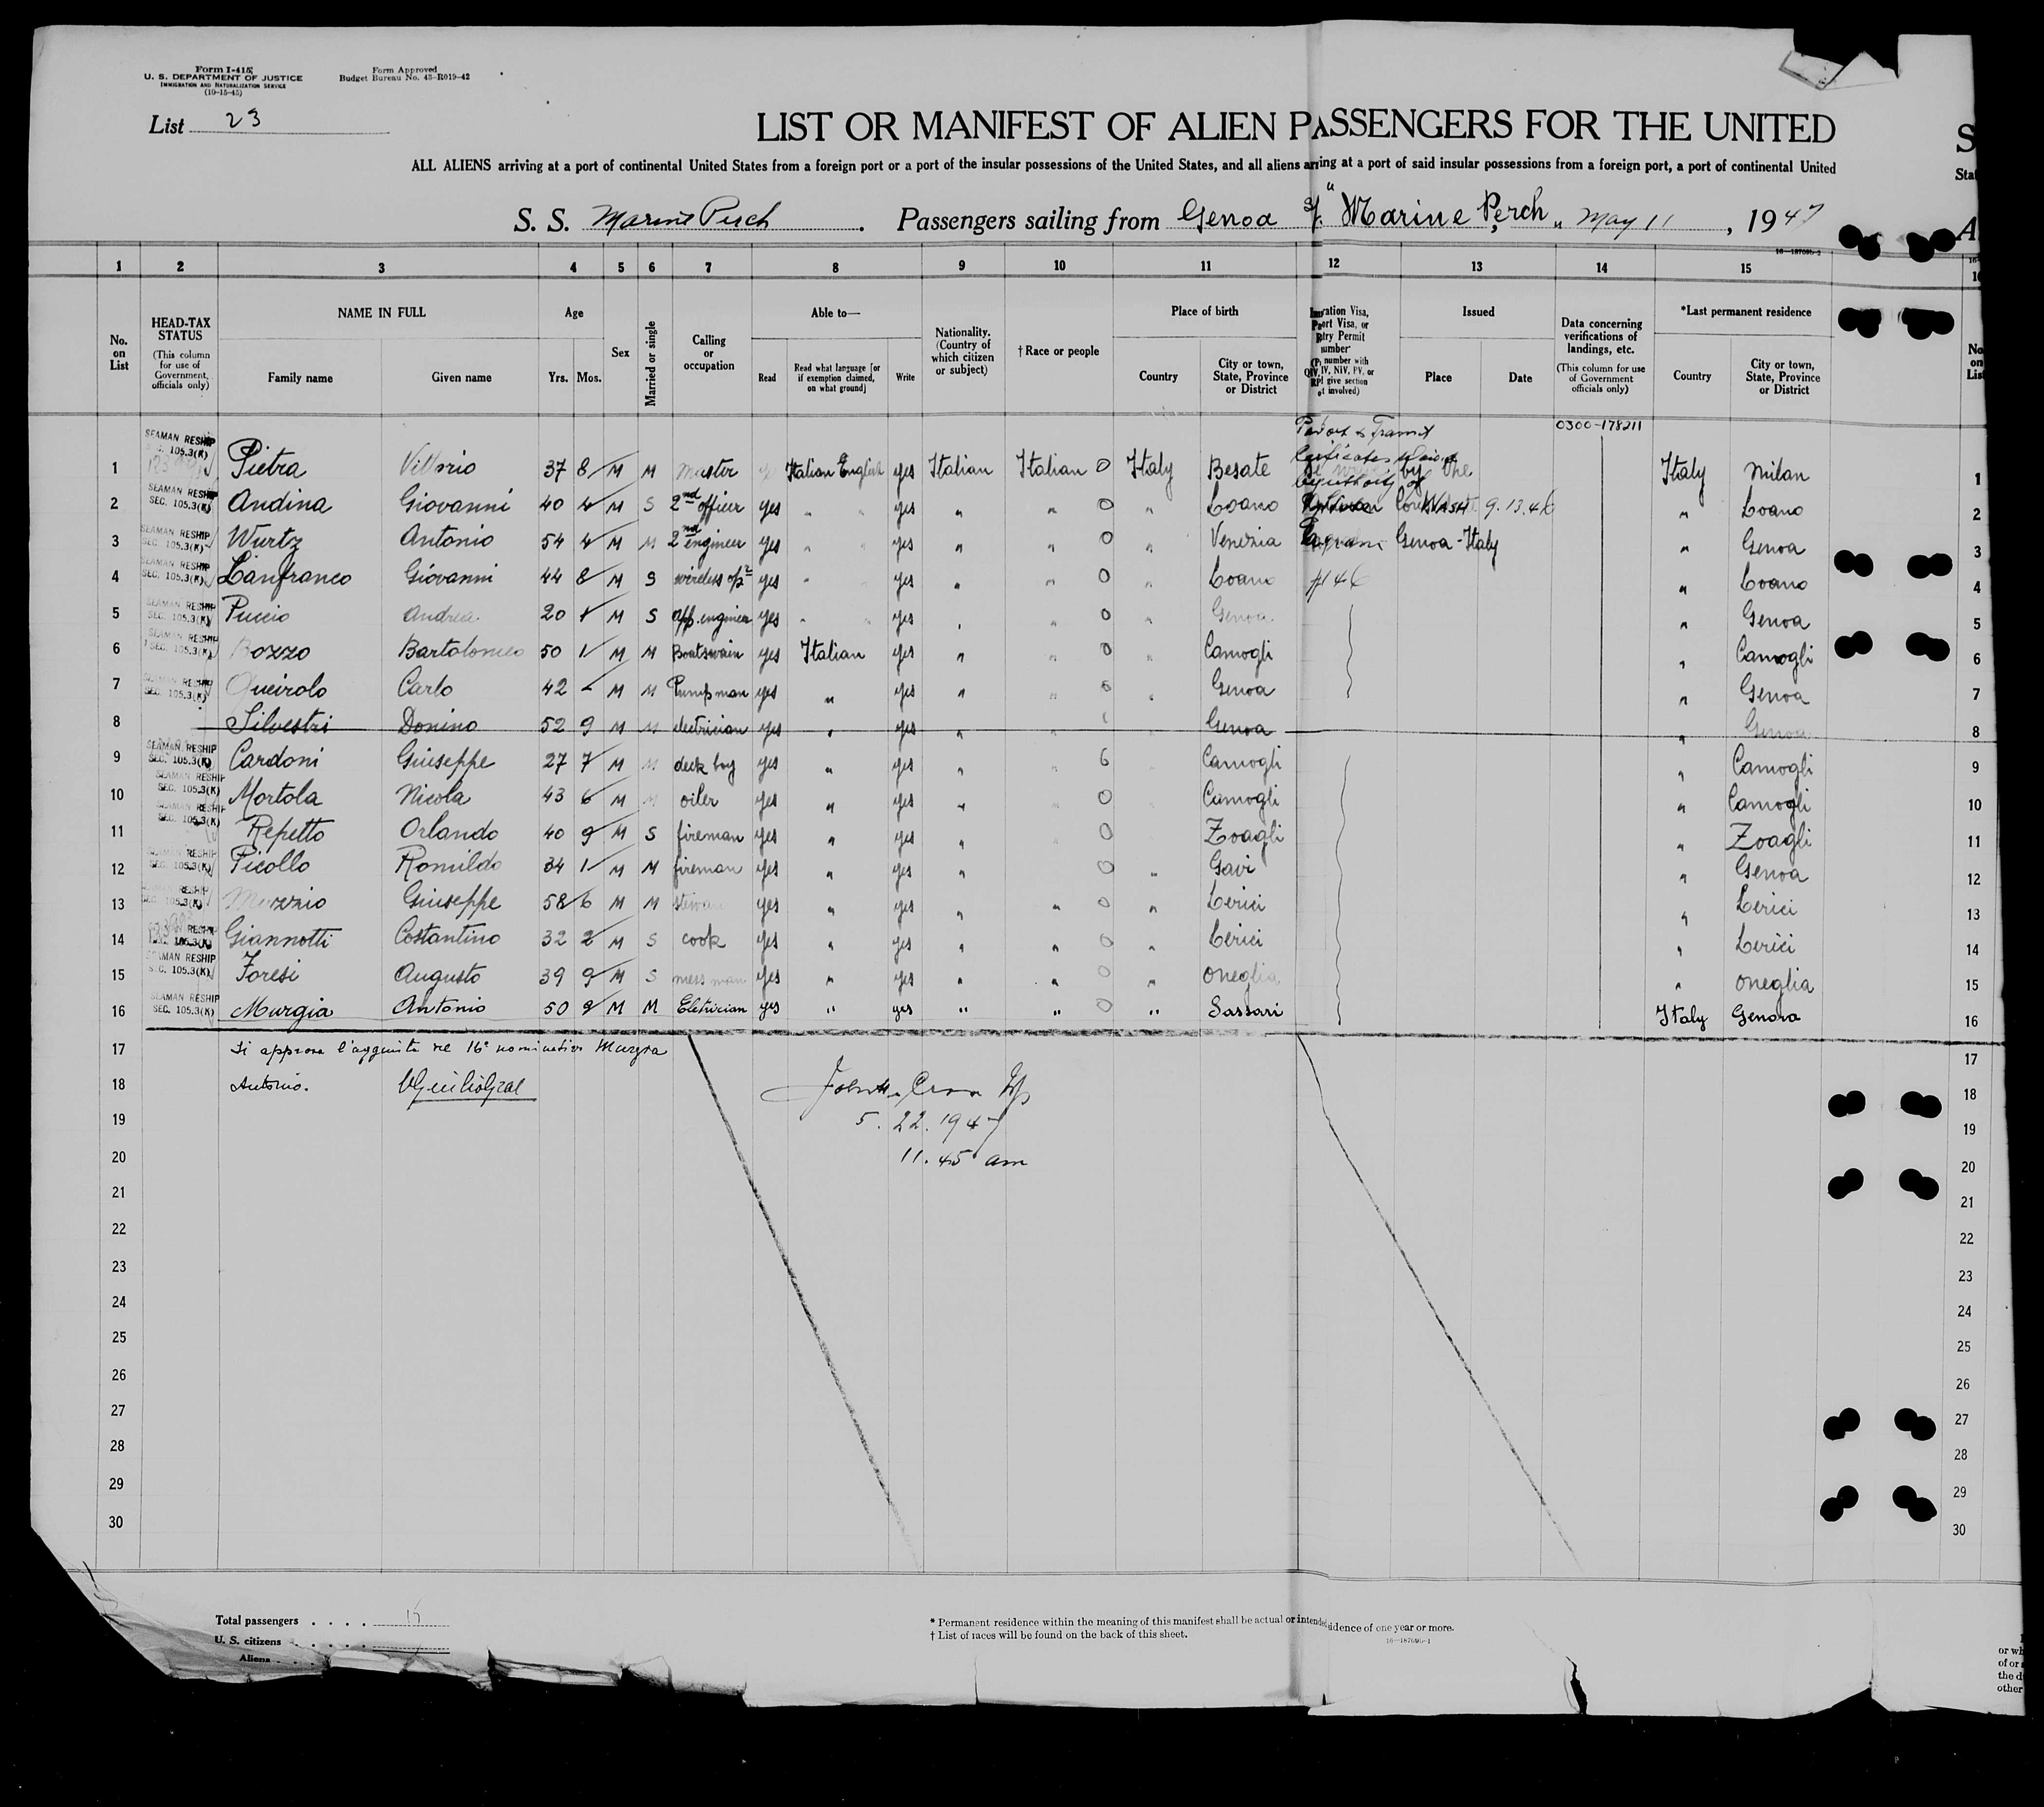 Form I-415
U. S. DEPARTMENT OF JUSTICE
IMMIGRATION AND NATURALIZATION SERVICE
(10-15-45)
Form Approved
Budget Bureau No. 43-R019-42
List 23
LIST OR MANIFEST OF ALIEN PASSENGERS FOR THE UNITED S
ALL ALIENS arriving at a port of continental United States from a foreign port or a port of the insular possessions of the United States, and all aliens arr ing at a port of said insular possessions from a foreign port, a port of continental United Stat
S. S. Marine Perch. Passengers sailing from Genoa "Marine Perch" May 11, 1947 A
16—18769b-2
1 2 3 4 5 6 7 8 9 10 11 12 13 14 15
No. on List
HEAD-TAX STATUS (This column for use of Government officials only)
NAME IN FULL
Family name Given name
Age
Yrs. Mos.
Sex
Married or single
Calling or occupation
Able to—
Read Read what language [or if exemption claimed, on what ground] Write
Nationality. (Country of which citizen or subject)
† Race or people
Place of birth
Country City or town, State, Province or District
Issued
Place Date
Data concerning verifications of landings, etc. (This column for use of Government officials only)
*Last permanent residence
Country City or town, State, Province or District
No. on List
0300-178211
1 SEAMAN RESHIP 105.3(K) Pietra Vittorio 37 8 M M master Italian English yes Italian Italian O Italy Besate by the Italy Milan 1
2 SEAMAN RESHIP SEC. 105.3(K) Andina Giovanni 40 4 M S 2nd officer yes " " yes " " O " Loano WASH 9.13.46 " Loano 2
3 SEAMAN RESHIP SEC. 105.3(K) Wurtz Antonio 54 4 M M 2nd engineer yes " " yes " " O " Venezia Genoa-Italy " Genoa 3
4 SEAMAN RESHIP SEC. 105.3(K) Lanfranco Giovanni 44 8 M S wireless op yes " " yes " " O " Loano #146 " Loano 4
5 SEAMAN RESHIP SEC. 105.3(K) Puccio Andrea 20 1 M S app. engineer yes " " yes " " O " Genoa " Genoa 5
6 SEAMAN RESHIP SEC. 105.3(K) Bozzo Bartolomeo 50 1 M M Boatswain yes Italian yes " " O " Camogli " Camogli 6
7 SEAMAN RESHIP SEC. 105.3(K) Queirolo Carlo 42 - M M Pumpman yes " yes " " O " Genoa " Genoa 7
8 Silvestri Donino 52 9 M M electrician yes " yes " " Genoa " Genoa 8
9 SEAMAN RESHIP SEC. 105.3(K) Cardoni Giuseppe 27 7 M M deck boy yes " yes " " O Camogli " Camogli 9
10 SEAMAN RESHIP SEC. 105.3(K) Mortola Nicola 43 6 M M oiler yes " yes " " O Camogli " Camogli 10
11 SEAMAN RESHIP SEC. 105.3(K) Repetto Orlando 40 9 M S fireman yes " yes " O Zoagli " Zoagli 11
12 SEAMAN RESHIP SEC. 105.3(K) Picollo Romildo 34 1 M M fireman yes " yes " O " Gavi " Genoa 12
13 SEAMAN RESHIP SEC. 105.3(K) Giuseppe 58 6 M M yes " yes " " O " Lerici " Lerici 13
14 SEAMAN RESHIP SEC. 105.3(K) Giannotti Costantino 32 2 M S cook yes " yes " " O " Lerici " Lerici 14
15 SEAMAN RESHIP SEC. 105.3(K) Foresi Augusto 39 9 M S mess man yes " yes " " O " Oneglia " Oneglia 15
16 SEAMAN RESHIP SEC. 105.3(K) Murgia Antonio 50 9 M M Eletrician yes " yes " " O " Sassari Italy Genova 16
17 Si approva l'aggiunta del 16° nominativo Murgia 17
18 Antonio. 18
19 5. 22. 1947 19
20 11.45 am 20
21 21
22 22
23 23
24 24
25 25
26 26
27 27
28 28
29 29
30 30
Total passengers . . . .
U. S. citizens . . . . .
Aliens . . .
* Permanent residence within the meaning of this manifest shall be actual or intended residence of one year or more.
† List of races will be found on the back of this sheet.
16—18769b-1
or wh
of or
the d
other